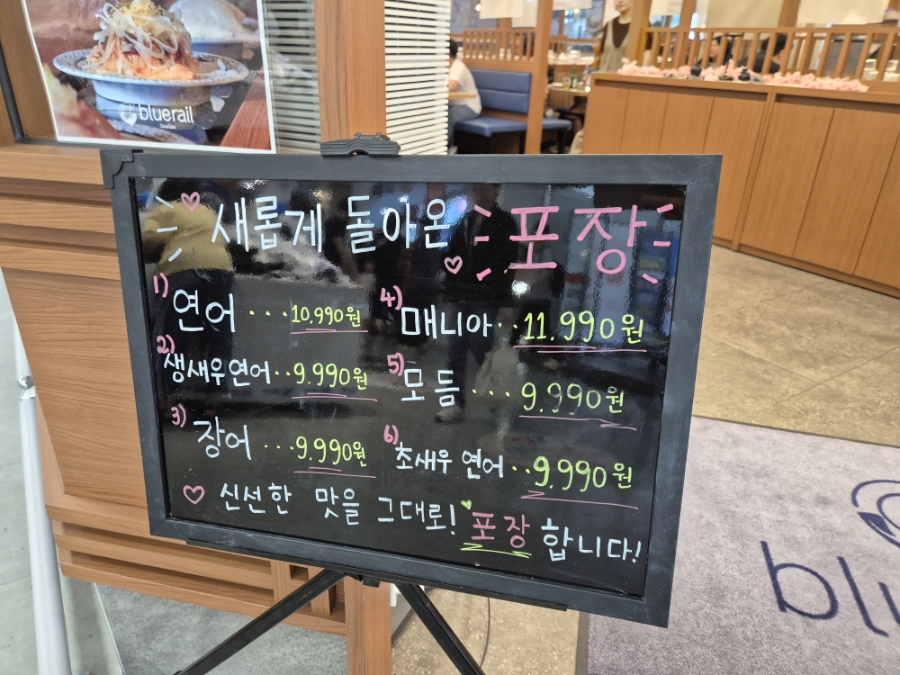 bluerail
새롭게 돌아온 포장
1) 연어 ...10,990원
2) 생새우연어..9.990원
3) 장어 ...9.990원
4) 매니아..11.990원
5) 모듬 ....9.990원
6) 초새우 연어..9.990원
신선한 맛을 그대로! 포장합니다!
blu